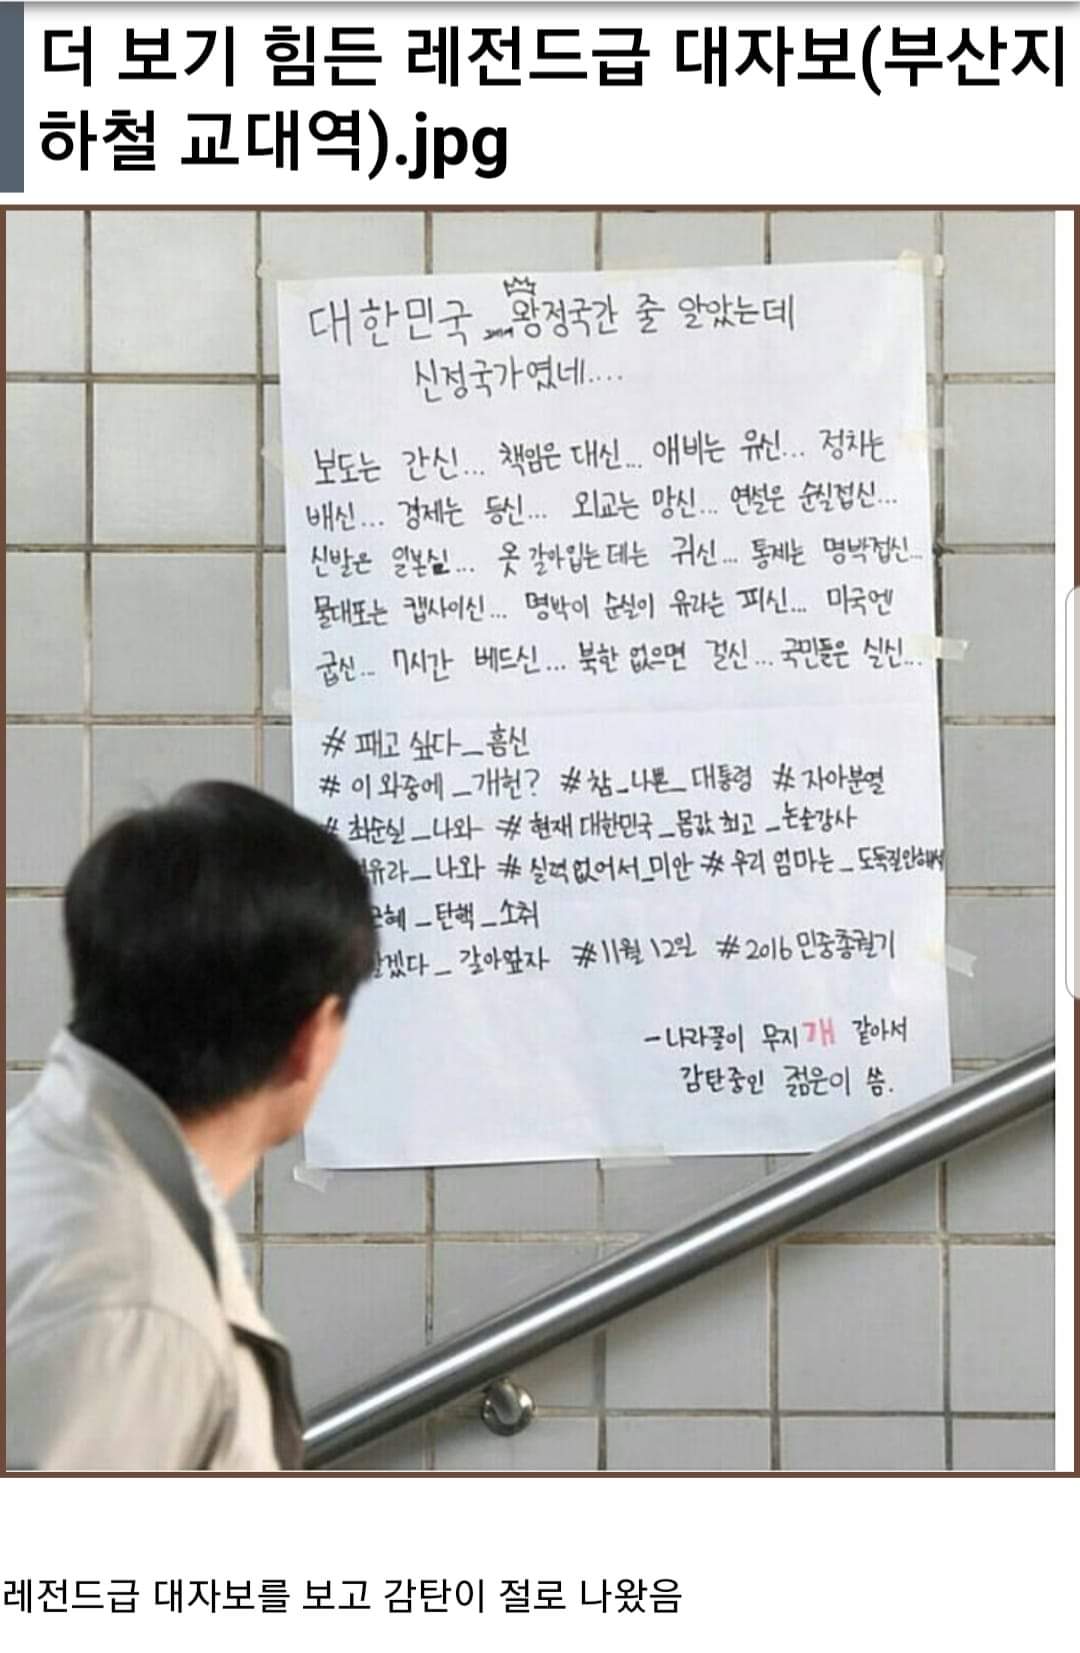 더 보기 힘든 레전드급 대자보(부산지
하철 교대역).jpg
대한민국 왕정국간 줄 알았는데
신정국가였네....
보도는 간신... 책임은 대신... 애비는 유신... 정치는
배신... 경제는 등신... 외교는 망신... 연설은 순실접신...
신발은 일본신... 옷 갈아입는데는 귀신... 통계는 명박접신...
물대포는 캡사이신... 명박이 순실이 유라는 피신... 미국엔
굽신... 7시간 베드신... 북한 없으면 걸신... 국민들은 실신...
# 패고 싶다_흠신
# 이 와중에_개헌? #참_나쁜_대통령 # 자아분열
# 최순실_나와 # 현재 대한민국_몸값 최고_논술강사
유라_나와 # 실력없어서_미안 # 우리 엄마는_도둑질안해서
근혜_탄핵_소취
갈겠다_갈아엎자 #11월 12일 #2016 민중총궐기
-나라꼴이 무지개 같아서
감탄중인 젊은이 씀.
레전드급 대자보를 보고 감탄이 절로 나왔음